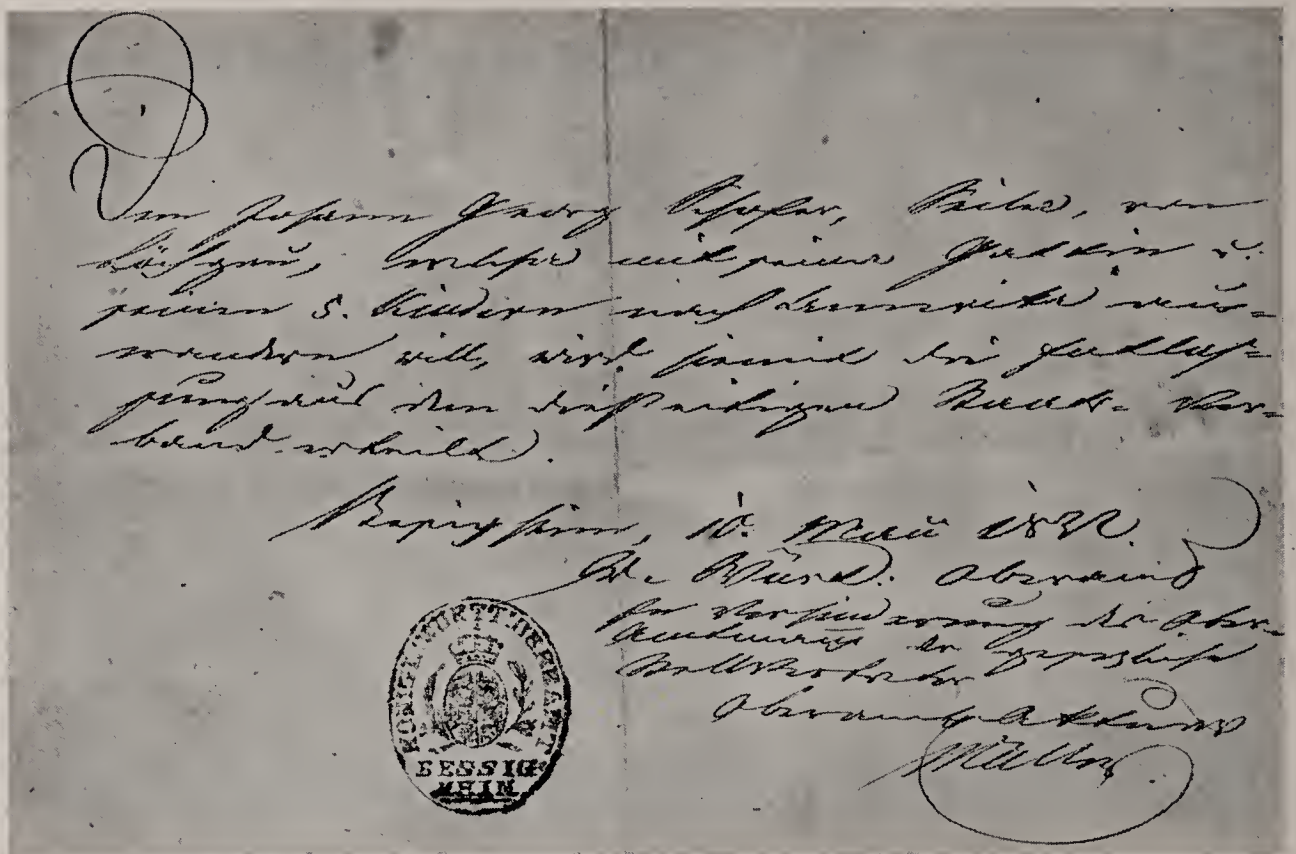 Dem Johann Georg Schäfer, Seiler, von
Löchgau, welcher mit seiner Gattin u.
seinen 5. Kindern nach Amerika aus=
wandern will, wird hiemit die Entlas=
sung aus dem diesseitigen Staats= Ver=
band ertheilt.
Besigheim, 10. Mai 1832.
K. Würt. Oberamt
In Verhinderung des Ober=
Amtmanns der gesetzliche
Stellvertreter
Oberamts Aktuar
Müller
KÖNIGL. WÜRTT. OBERAMT
BESSIG=
HEIM